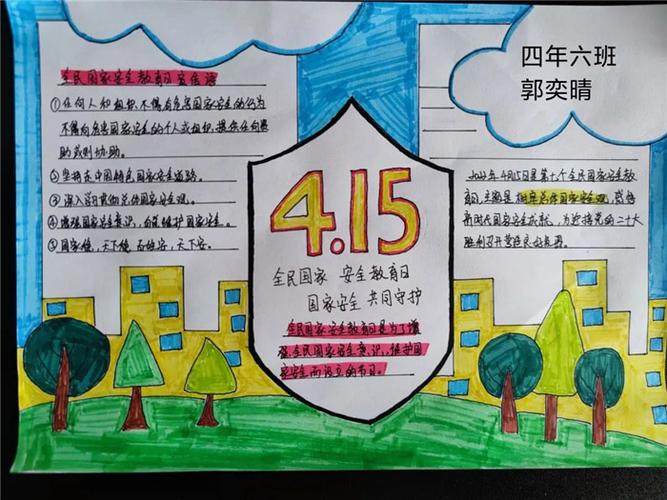 四年六班
郭奕晴
全民国家安全教育日宣传语
①任何人和组织不得有危害国家安全的行为
不得向危害国家安全的个人或组织提供任何资
助或则协助。
②坚持走中国特色国家安全道路。
③深入学习贯彻总体国家安全观。
④增强国家安全意识，自觉维护国家安全。
⑤国家健，天下健 百姓安，天下安。
4.15
全民国家 安全教育日
国家安全 共同守护
全民国家安全教育日是为了增
强全民国家安全意识，维护国
家安全而设立的节日。
2022年4月15日是第七个全民国家安全教
育日，主题是 树牢总体国家安全观，感悟
新时代国家安全成就，为迎接党的二十大
胜利召开营造良好氛围。